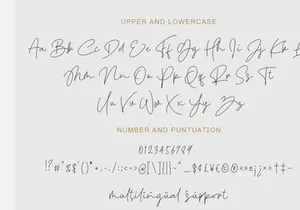 UPPER AND LOWERCASE
Aa Bb Cc Dd Ee Ff Gg Hh Ii Jj Kk
Mm Nn Oo Pp Qq Rr Ss Tt
Uu Vv Ww Xx Yy Zz
NUMBER AND PUNTUATION
0123456789
multilingual support